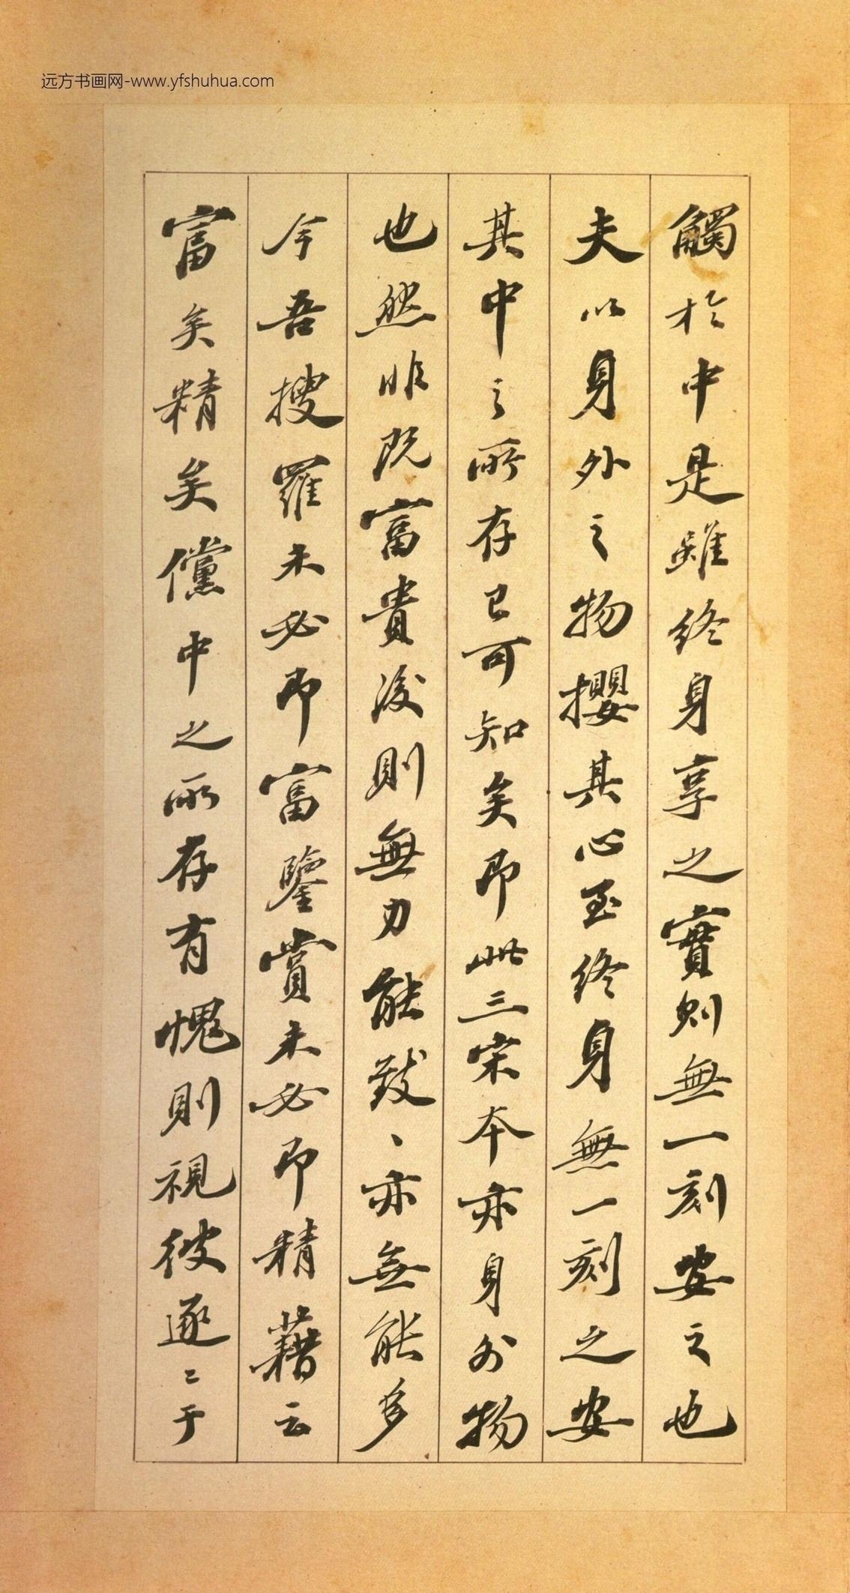 远方书画网-www.yfshuhua.com
觸於中是雖終身享之實則無一刻安之也
夫以身外之物攖其心至終身無一刻之安
其中之所存已可知矣即此三宋本亦身外物
也然非既富貴後則無力能致、亦無能多
今吾搜羅未必即富鑒賞未必即精藉云
富矣精矣儻中之所存有愧則視彼逐〻于